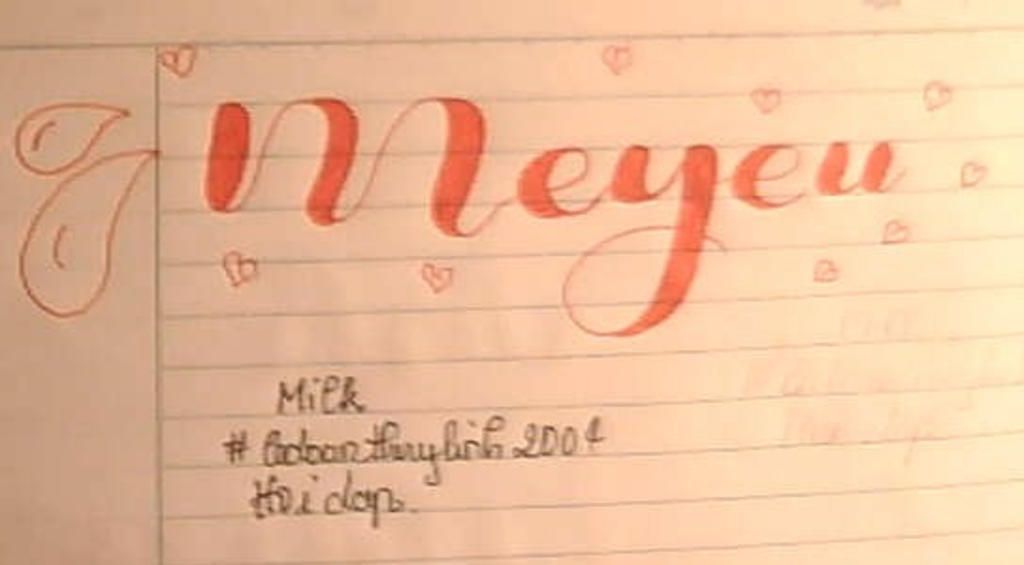 Meyeu
Milk
# doanthuylinh2004
Hoidap.